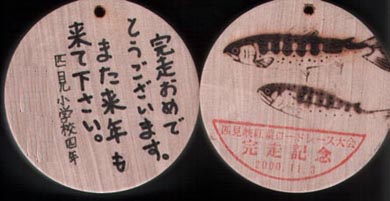 完走おめで
とうございます。
また来年も
来て下さい。
匹見小学校四年
匹見峡紅葉ロードレース大会
完走記念
2000.11.3